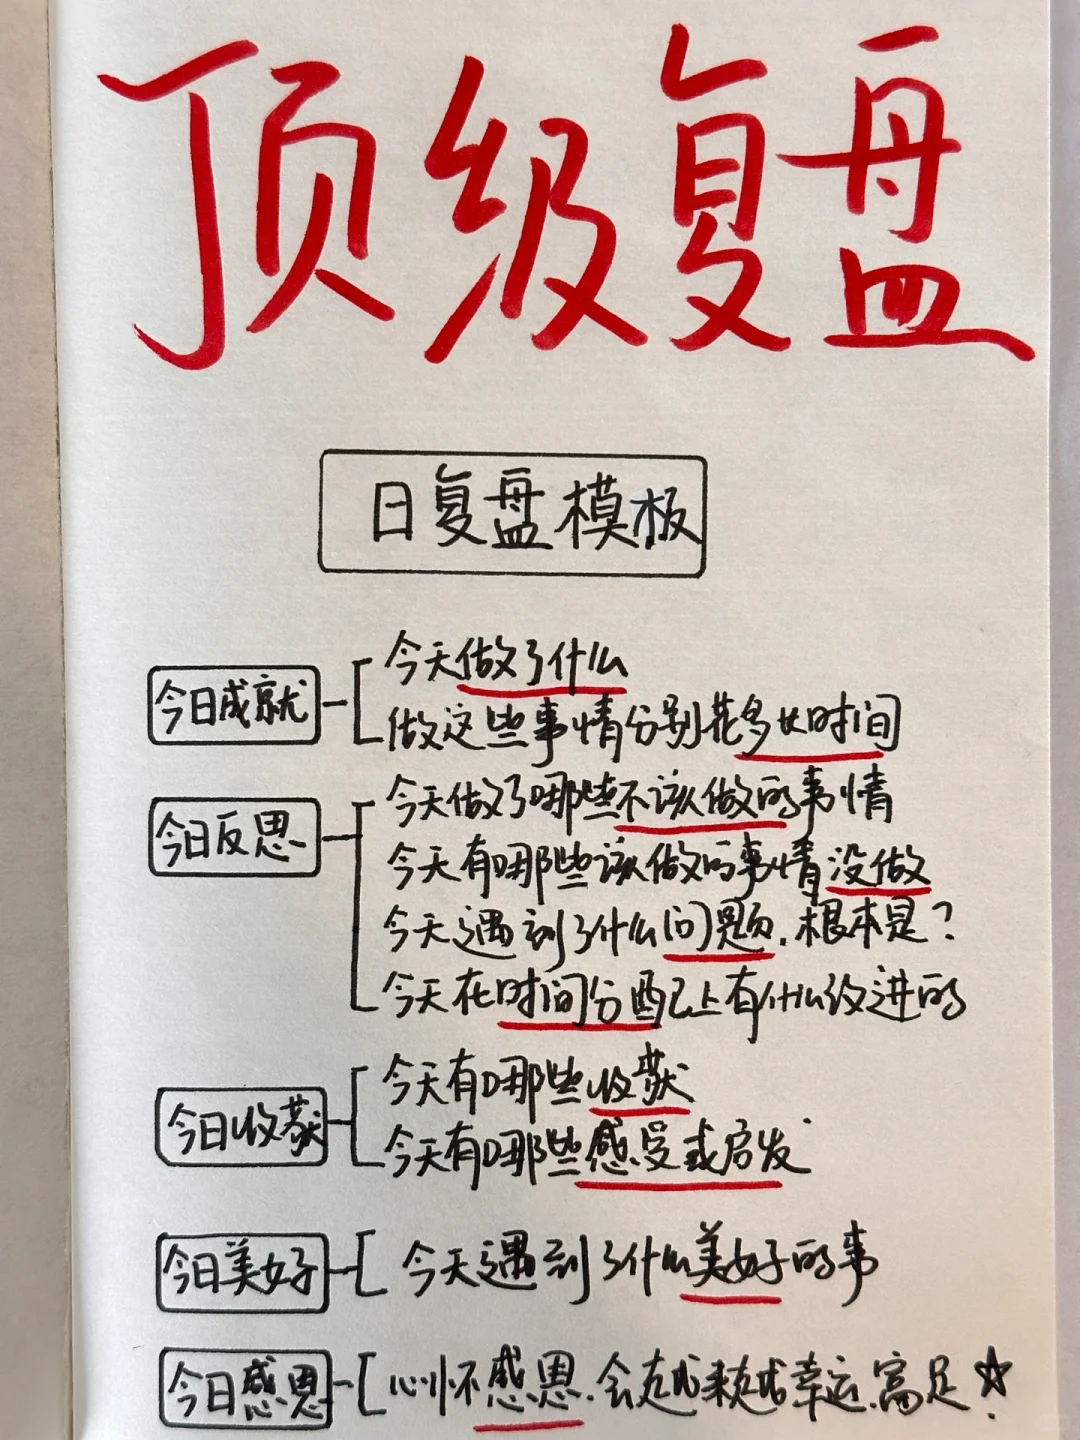 顶级复盘
日复盘模板
今日成就
今天做了什么
做这些事情分别花多长时间
今日反思
今天做了哪些不该做的事情
今天有哪些该做的事情没做
今天遇到了什么问题.根本是?
今天在时间分配上有什么改进的
今日收获
今天有哪些收获
今天有哪些感受或启发
今日美好
今天遇到了什么美好的事
今日感恩
心怀感恩.会越来越幸运.富足☆